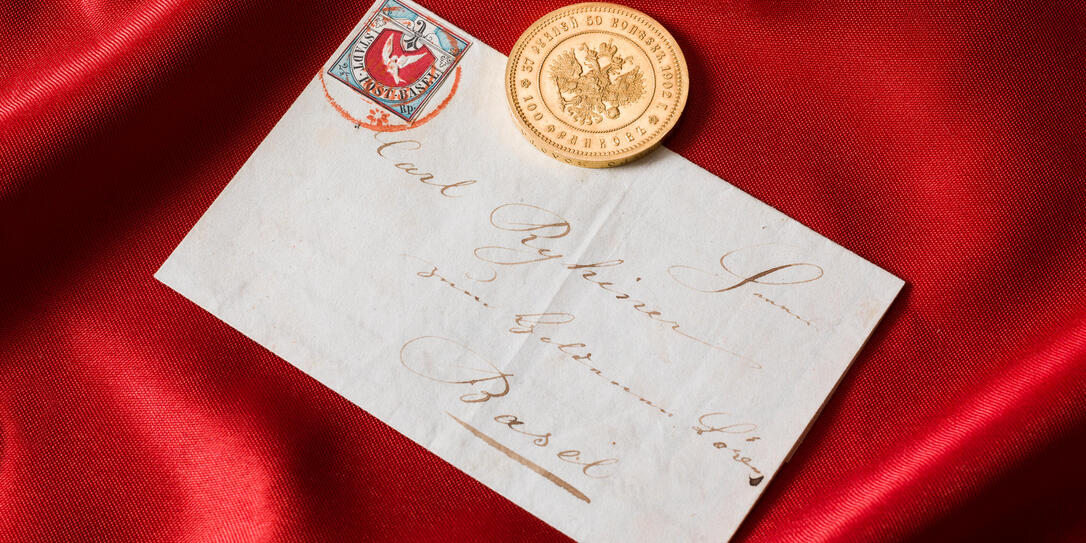 STADT-POST-BASEL
2½ Rp.
37 РУБЛЕЙ 50 КОПѢЕКЪ. 1902 Г.
100 ФРАНКОВЪ
Carl Ryhiner
zum Löwen
Basel